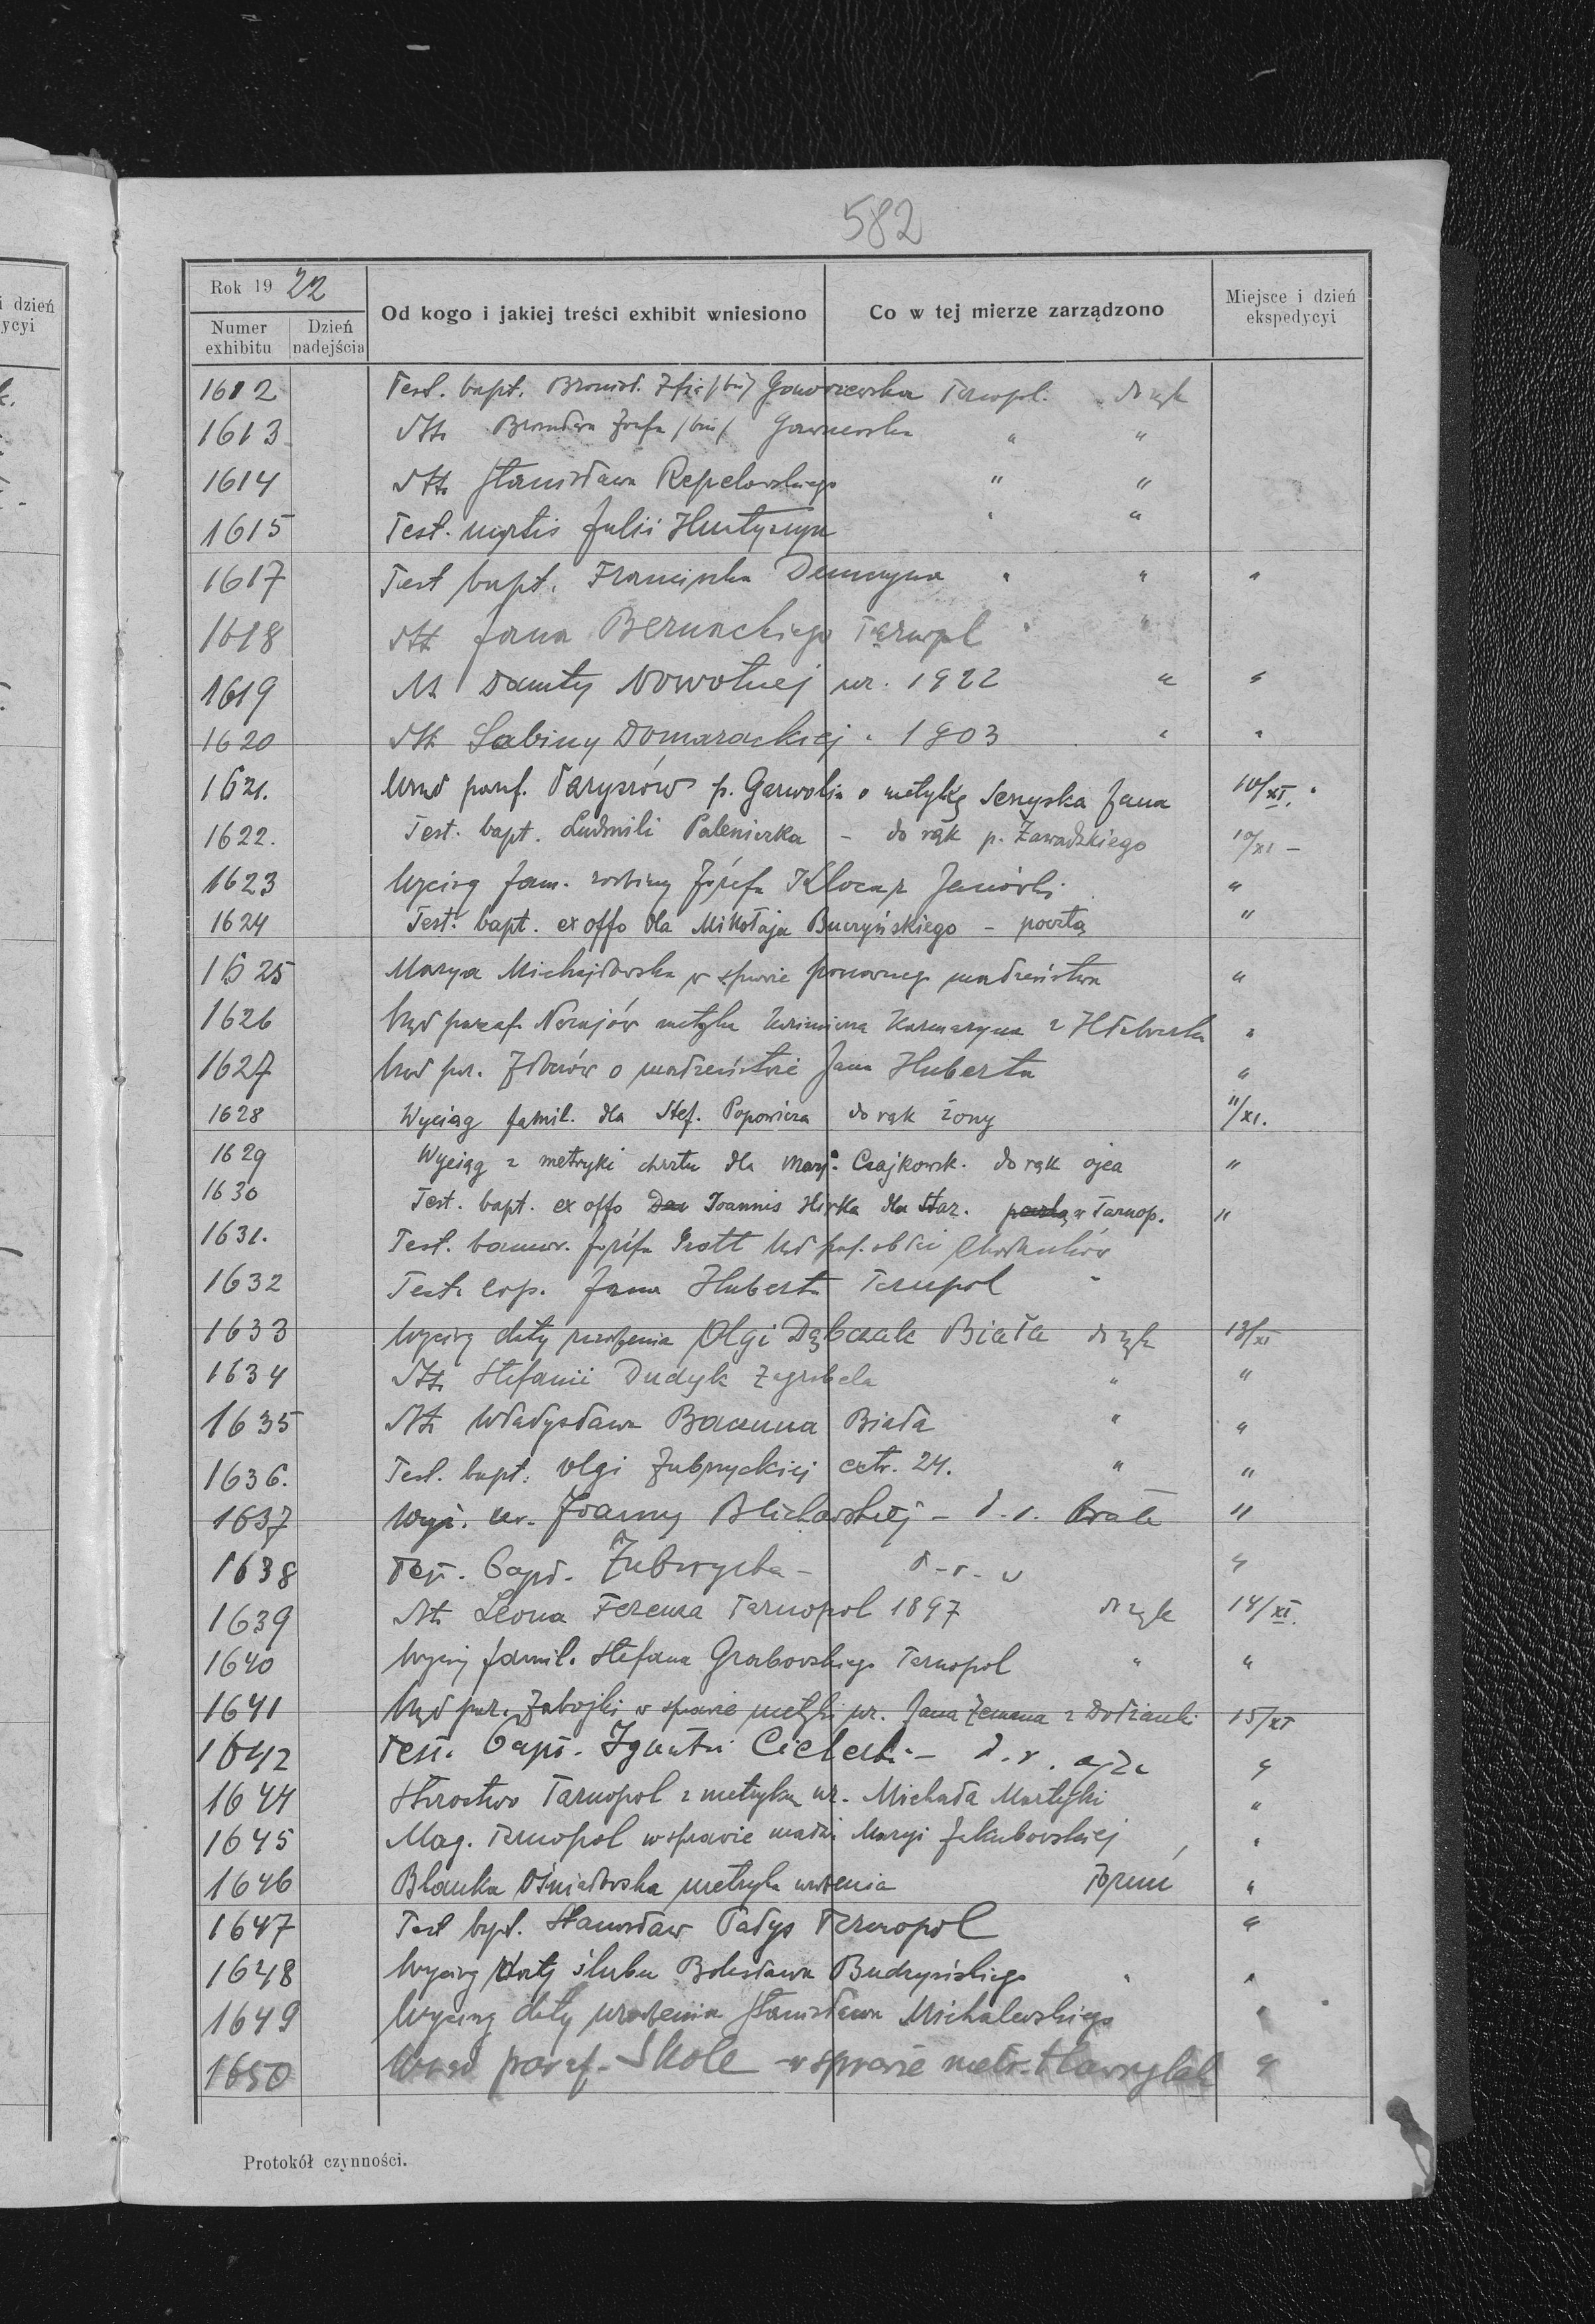 582
Rok 19 22
Numer exhibitu
Dzień nadejścia
Od kogo i jakiej treści exhibit wniesiono
Co w tej mierze zarządzono
Miejsce i dzień ekspedycyi
i dzień
ycyi
1612 Test. bapt. Bronisł. Tarnopol. do rąk
1613 Dtto " "
1614 Dtto Stanisława Repelowskiego " "
1615 Test. mortis Julii " "
1617 Test bapt. Franciszka " " "
1618 Dtt Jana Bernackiego Tarnopol " "
1619 Dtt Danuty Nowotnej ur. 1922 " "
1620 Dtt Sabiny Domarackiej " 1903 " "
1621. Urząd paraf. Parysów p. Garwolin o metrykę Jana 10/XI. "
1622. Test. bapt. Ludmili Paleniczka – do rąk p. Zawadzkiego 10/XI –
1623 Wyciąg fam. rodziny Józefa Janówki "
1624 Test. bapt. ex offo dla Mikołaja Buczyńskiego – pocztą "
1625 Marya Michajłowska w sprawie ponownego małżeństwa "
1626 Urząd paraf. Narajów metryka Kazimierza z "
1627 Urząd par. Zborów o małżeństwie Jana Huberta "
1628 Wyciąg famil. dla Stef. Popowicza do rąk żony 11/XI.
1629 Wyciąg z metryki chrztu dla Marj. Czajkowsk. do rąk ojca "
1630 Test. bapt. ex offo Joannis Hirka dla Star. w Tarnop. "
1631. Test. Józefa
1632 Test. cop. Jana Huberta Tarnopol "
1633 Wyciąg daty urodzenia Olgi Dąbczak Biała do rąk 13/XI
1634 Dtto Stefanii Dudyk Zagrobela " "
1635 Dtt Władysława Bauma Biała " "
1636. Test. bapt. Olgi Zubryckiej extr. 24. " "
1637 Wyc. ur. Joanny – d. r. "
1638 Test. bapt. Zubrycka – d – r – "
1639 Dtt Leona Ferenza Tarnopol 1897 do rąk 14/XI.
1640 Wyciąg famil. Stefana Grabowskiego Tarnopol " "
1641 Urząd par. Zabojki w sprawie metryki ur. Jana Zemana z Dołżanki 15/XI
1642 Test. bapt. – d. r. ojca "
1644 Starostwo Tarnopol z metryką ur. Michała Martyki "
1645 Mag. Tarnopol w sprawie Maryi Jakubowskiej "
1646 Blanka Ośniałowska metryka urodzenia Toruń "
1647 Test bapt. Stanisław Tarnopol "
1648 Wyciąg daty ślubu Bolesława Budzyńskiego " "
1649 Wyciąg daty urodzenia Stanisława Michalewskiego "
1650 Urząd paraf. Skole – w sprawie metr. Hawrylak "
Protokół czynności.